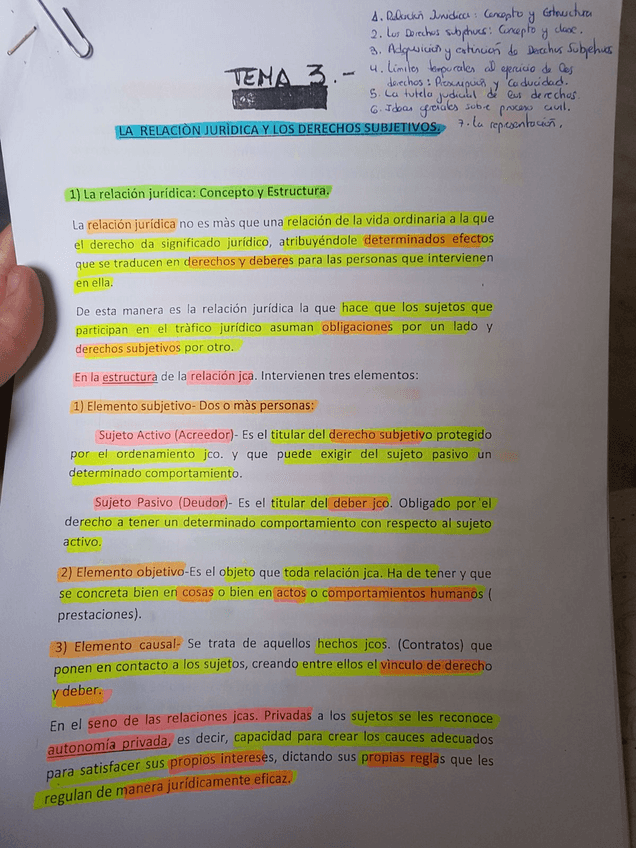 1. Relación Jurídica: Concepto y Estructura
2. Los Derechos subjetivos: Concepto y clase.
3. Adquisición y extinción de Derechos Subjetivos
4. Límites temporales al ejercicio de los
derechos: Prescripción y Caducidad.
5. La tutela judicial de los derechos.
6. Ideas generales sobre proceso civil.
7. La representación.
TEMA 3.-
LA RELACIÒN JURÌDICA Y LOS DERECHOS SUBJETIVOS.
1) La relación jurídica: Concepto y Estructura.
La relación jurídica no es màs que una relación de la vida ordinaria a la que
el derecho da significado jurídico, atribuyéndole determinados efectos
que se traducen en derechos y deberes para las personas que intervienen
en ella.
De esta manera es la relación jurídica la que hace que los sujetos que
participan en el tràfico jurídico asuman obligaciones por un lado y
derechos subjetivos por otro.
En la estructura de la relación jca. Intervienen tres elementos:
1) Elemento subjetivo- Dos o màs personas:
Sujeto Activo (Acreedor)- Es el titular del derecho subjetivo protegido
por el ordenamiento jco. y que puede exigir del sujeto pasivo un
determinado comportamiento.
Sujeto Pasivo (Deudor)- Es el titular del deber jco. Obligado por el
derecho a tener un determinado comportamiento con respecto al sujeto
activo.
2) Elemento objetivo-Es el objeto que toda relación jca. Ha de tener y que
se concreta bien en cosas o bien en actos o comportamientos humanos (
prestaciones).
3) Elemento causal- Se trata de aquellos hechos jcos. (Contratos) que
ponen en contacto a los sujetos, creando entre ellos el vìnculo de derecho
y deber.
En el seno de las relaciones jcas. Privadas a los sujetos se les reconoce
autonomía privada, es decir, capacidad para crear los cauces adecuados
para satisfacer sus propios intereses, dictando sus propias reglas que les
regulan de manera jurídicamente eficaz.